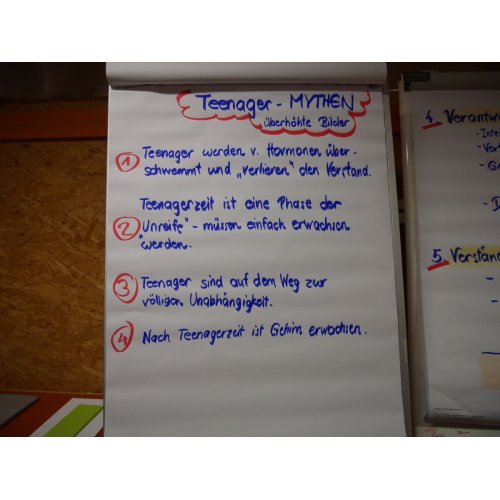 Teenager - MYTHEN
überhöhte Bilder
1 Teenager werden v. Hormonen über-
schwemmt und "verlieren" den Verstand.
Teenagerzeit ist eine Phase der
2 "Unreife" - müssen einfach erwachsen
werden.
3 Teenager sind auf dem Weg zur
völligen Unabhängigkeit.
4 Nach Teenagerzeit ist Gehirn erwachsen.
4. Verantw
5. Verständ